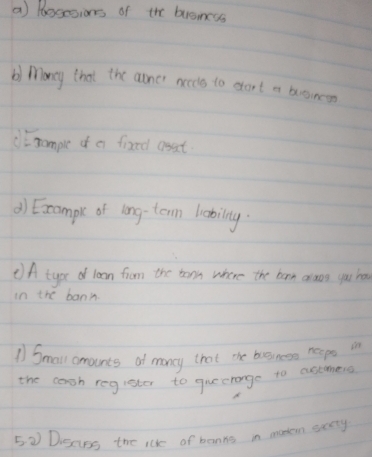 a) Possesions of the business
b) Money that the owner needs to start a business
c) Example of a fixed asset.
d) Example of long-term liability.
e) A type of loan from the bank where the bank you
in the bank
f) Small amounts of money that the business keeps in
the cash register to give change to customers
5.2) Discuss the role of banks in modern society